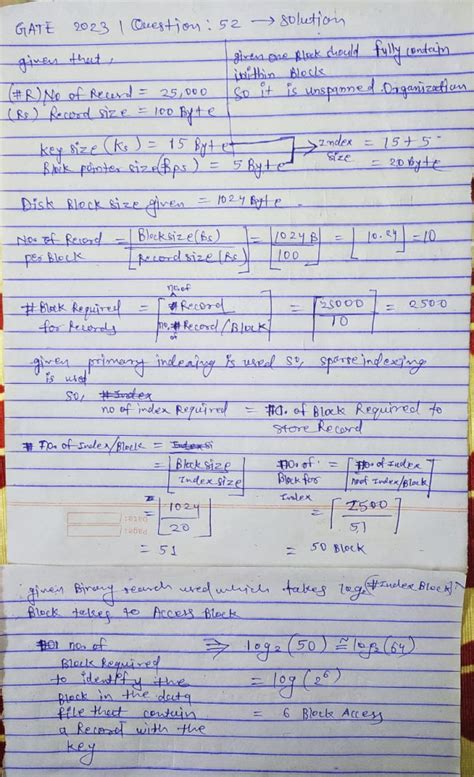 GATE 2023 | Question: 52 → Solution
given that,
given one Block should fully contain
within Block
So it is unspanned Organization
(#R) No of Record = 25,000
(Rs) Record size = 100 Byte
Key size (Ks) = 15 Byte
Block pointer size (Bps) = 5 Byte
→ Index size = 15 + 5
= 20 Byte
Disk Block size given = 1024 Byte.
No. of Record per Block = ⌊Block size (Bs) / Record size (Rs)⌋ = ⌊1024 B / 100⌋ = ⌊10.24⌋ = 10
# Block Required for Records = ⌈no. of Record / no. of Record/Block⌉ = ⌈25000 / 10⌉ = 2500
given primary indexing is used so, sparse indexing
is used
So,
no of index Required = no. of Block Required to
store Record
# no. of Index/Block =
= ⌊Block size / Index size⌋
= ⌊1024 / 20⌋
= 51
no. of Block for Index = ⌈no. of Index / no of Index/Block⌉
= ⌈2500 / 51⌉
= 50 Block
given Binary search used which takes log₂(#Index Block)
Block takes to Access Block
no. of
Block Required
to identify the
Block in the data
file that contain
a Record with the
key
⇒ log₂(50) ≅ log₂(64)
= log(2⁶)
= 6 Block Access